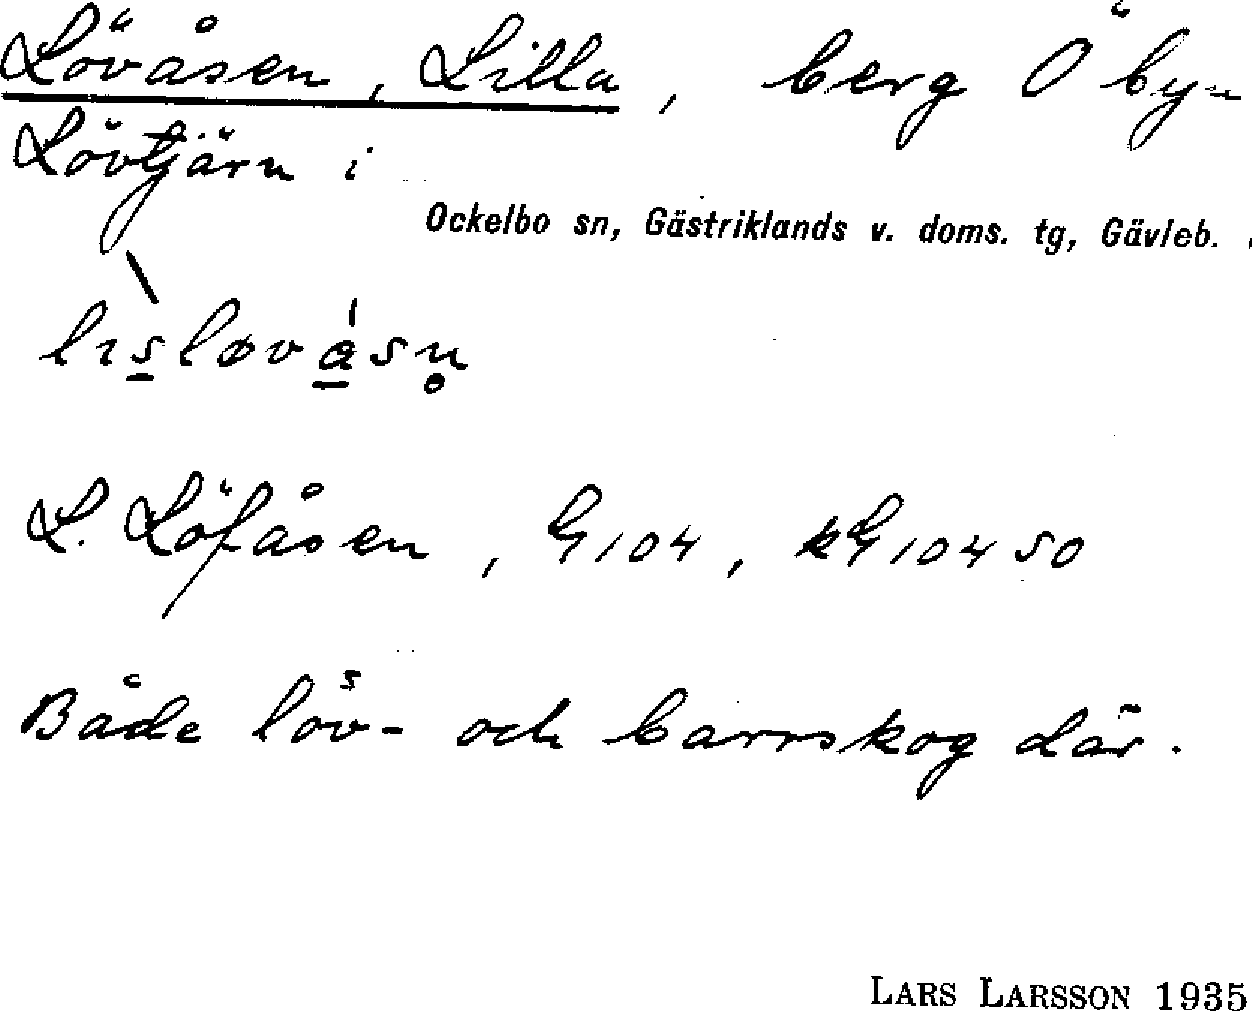 Lövåsen, Lilla, berg Ö byn
Lövtjärn i
Ockelbo sn, Gästriklands v. doms. tg, Gävleb.
L. Löfåsen, G104, kG10450
Både löv- och barrskog där.
LARS LARSSON 1935